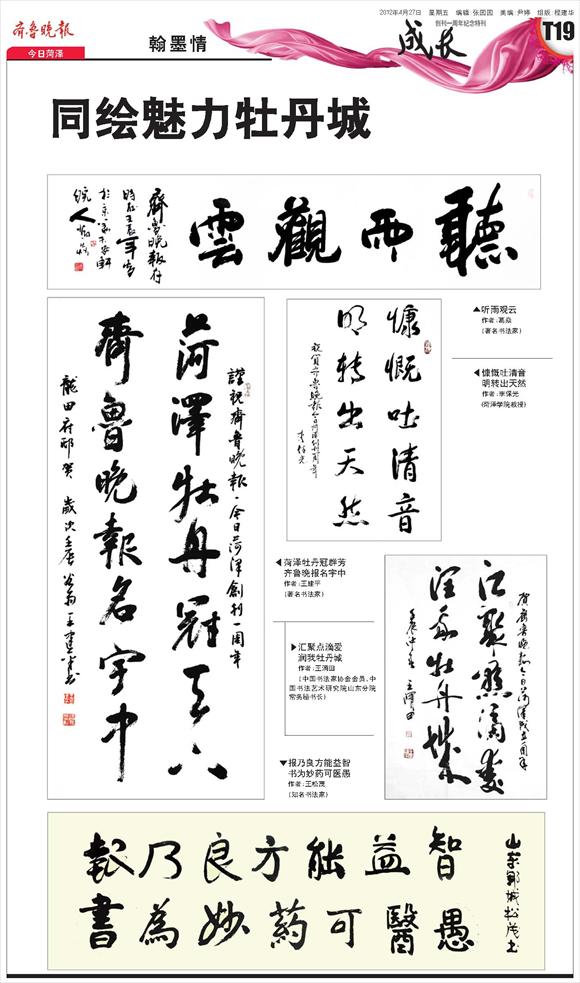 齐鲁晚报
今日菏泽
翰墨情
2012年4月27日 星期五 编辑:张园园 美编:尹婷 组版:程建华
创刊一周年纪念特刊
成长
T19
同绘魅力牡丹城
聽雨觀雲
齊魯晚報存
▲听雨观云
作者:葛焱
(著名书法家)
慷慨吐清音
明转出天然
祝贺齐鲁晚报今日菏泽创刊一周年
李保光
◀慷慨吐清音
明转出天然
作者:李保光
(菏泽学院教授)
謹祝齊魯晚報·今日菏澤創刊一周年
菏澤牡丹冠天下
齊魯晚報名宇中
◀菏泽牡丹冠群芳
齐鲁晚报名宇中
作者:王建平
(著名书法家)
▶汇聚点滴爱
润我牡丹城
作者:王溥田
(中国书法家协会会员、中
国书法艺术研究院山东分院
常务秘书长)
賀齊魯晚報今日菏澤成立一周年
▼报乃良方能益智
书为妙药可医愚
作者:王松茂
(知名书法家)
報乃良方能益智
書為妙藥可醫愚
山东鄆城松茂书